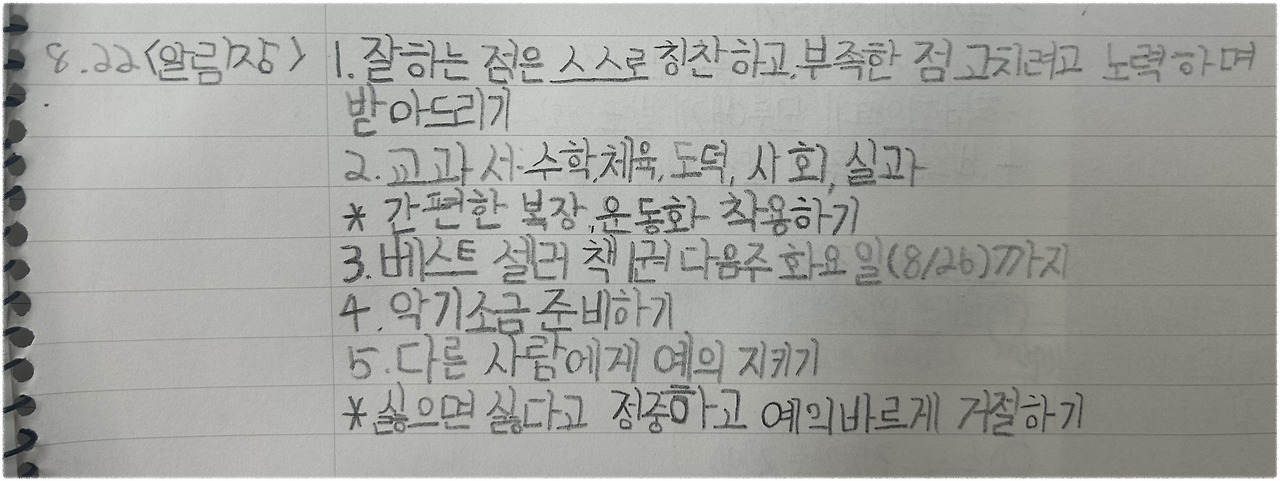 8.22<알림장> 1. 잘하는 점은 스스로 칭찬하고, 부족한 점 고치려고 노력하며
받아드리기
2. 교과서: 수학, 체육, 도덕, 사회, 실과
* 간편한 복장, 운동화 착용하기
3. 베스트 셀러 책 1권 다음주 화요일(8/26)까지
4. 악기소금 준비하기
5. 다른 사람에게 예의 지키기
* 싫으면 싫다고 정중하고 예의바르게 거절하기